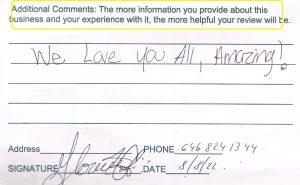 Additional Comments: The more information you provide about this
business and your experience with it, the more helpful your review will be.
We Love you All, Amazing!
Address PHONE 646 824 1344
SIGNATURE DATE 8/8/22